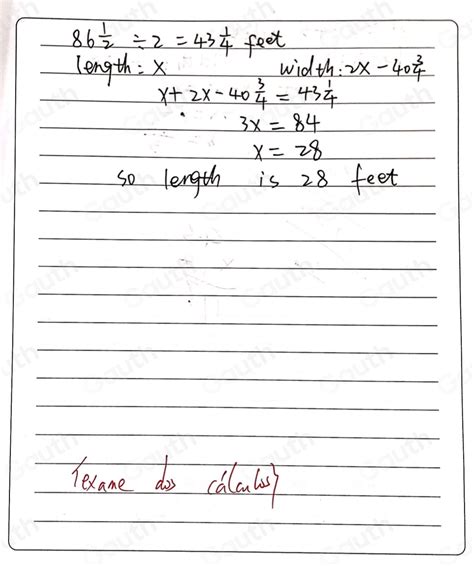 86 1/2 ÷ 2 = 43 1/4 feet
length: x width: 2x - 40 3/4
x + 2x - 40 3/4 = 43 1/4
3x = 84
x = 28
so length is 28 feet
{exame dos cálculos}